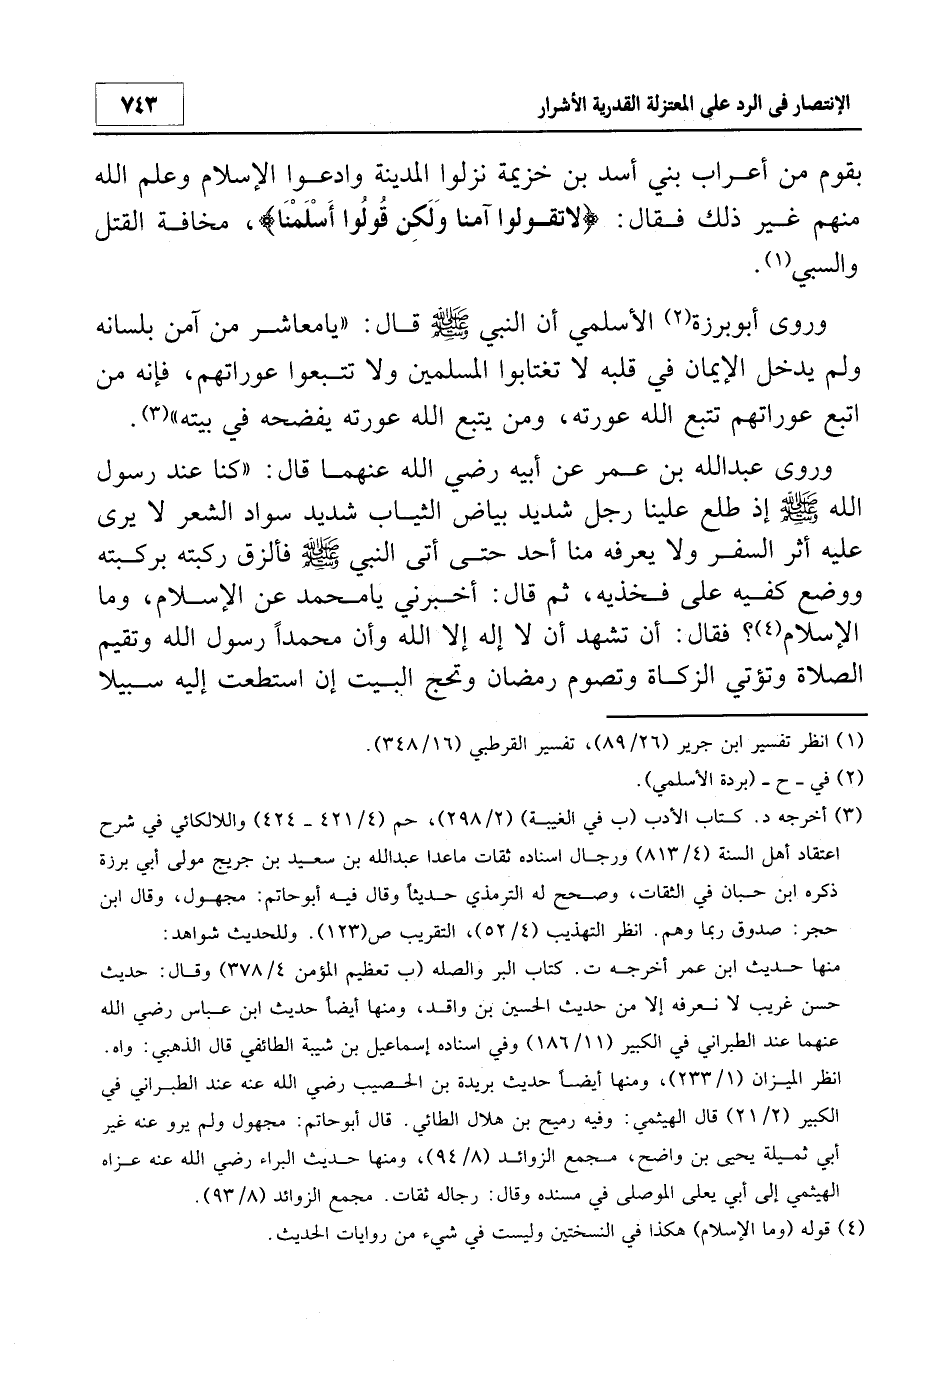 الإنتصار في الرد على المعتزلة القدرية الأشرار
٧٤٣
بقوم من أعراب بني أسد بن خزيمة نزلوا المدينة وادعوا الإسلام وعلم الله
منهم غير ذلك فقال: ﴿لاتقولوا آمنا وَلَكِن قُولُوا أَسْلَمْنَا﴾، مخافة القتل
والسبي(١).
وروى أبوبرزة(٢) الأسلمي أن النبي ﷺ قال: «يامعاشر من آمن بلسانه
ولم يدخل الإيمان في قلبه لا تغتابوا المسلمين ولا تتبعوا عوراتهم، فإنه من
اتبع عوراتهم تتبع الله عورته، ومن يتبع الله عورته يفضحه في بيته»(٣).
وروى عبدالله بن عمر عن أبيه رضي الله عنهما قال: «كنا عند رسول
الله ﷺ إذ طلع علينا رجل شديد بياض الثياب شديد سواد الشعر لا يرى
عليه أثر السفر ولا يعرفه منا أحد حتى أتى النبي ﷺ فألزق ركبته بركبته
ووضع كفيه على فخذيه، ثم قال: أخبرني يامحمد عن الإسلام، وما
الإسلام(٤)؟ فقال: أن تشهد أن لا إله إلا الله وأن محمداً رسول الله وتقيم
الصلاة وتؤتي الزكاة وتصوم رمضان وتحج البيت إن استطعت إليه سبيلا
(١) انظر تفسير ابن جرير (٨٩/٢٦)، تفسير القرطبي (٣٤٨/١٦).
(٢) في - ح - (بردة الأسلمي).
(٣) أخرجه د. كتاب الأدب (ب في الغيبة) (٢٩٨/٢)، حم (٤٢١/٤ - ٤٢٤) واللالكائي في شرح
اعتقاد أهل السنة (٨١٣/٤) ورجال اسناده ثقات ماعدا عبدالله بن سعيد بن جريج مولى أبي برزة
ذكره ابن حبان في الثقات، وصحح له الترمذي حديثاً وقال فيه أبوحاتم: مجهول، وقال ابن
حجر: صدوق ربما وهم. انظر التهذيب (٥٢/٤)، التقريب ص(١٢٣). وللحديث شواهد:
منها حديث ابن عمر أخرجه ت. كتاب البر والصله (ب تعظيم المؤمن ٣٧٨/٤) وقال: حديث
حسن غريب لا نعرفه إلا من حديث الحسين بن واقد، ومنها أيضاً حديث ابن عباس رضي الله
عنهما عند الطبراني في الكبير (١٨٦/١١) وفي اسناده إسماعيل بن شيبة الطائفي قال الذهبي: واه.
انظر الميزان (٢٣٣/١)، ومنها أيضاً حديث بريدة بن الحصيب رضي الله عنه عند الطبراني في
الكبير (٢١/٢) قال الهيثمي: وفيه رميح بن هلال الطائي. قال أبوحاتم: مجهول ولم يرو عنه غير
أبي ثميلة يحيى بن واضح، مجمع الزوائد (٩٤/٨)، ومنها حديث البراء رضي الله عنه عزاه
الهيثمي إلى أبي يعلى الموصلى في مسنده وقال: رجاله ثقات. مجمع الزوائد (٩٣/٨).
(٤) قوله (وما الإسلام) هكذا في النسختين وليست في شيء من روايات الحديث.